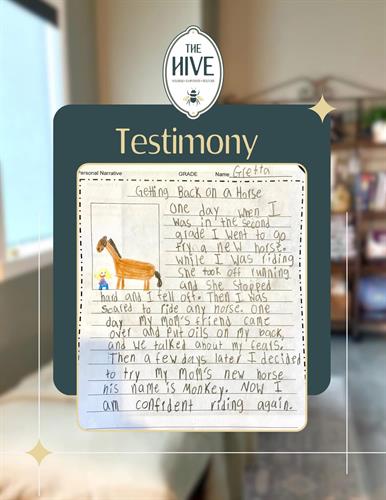 THE
HIVE
Testimony
Personal Narrative GRADE Name Gretta
Getting Back on a Horse
One day when I
was in the second
grade I went to go
try a new horse.
While I was riding
she took off running
and she stopped
hard and I fell off. Then I was
scared to ride any horse. One
day my mom's friend came
over and put oils on my back
and we talked about my fears.
Then a few days later I decided
to try my mom's new horse
his name is Monkey. NOW I
am confident riding again.